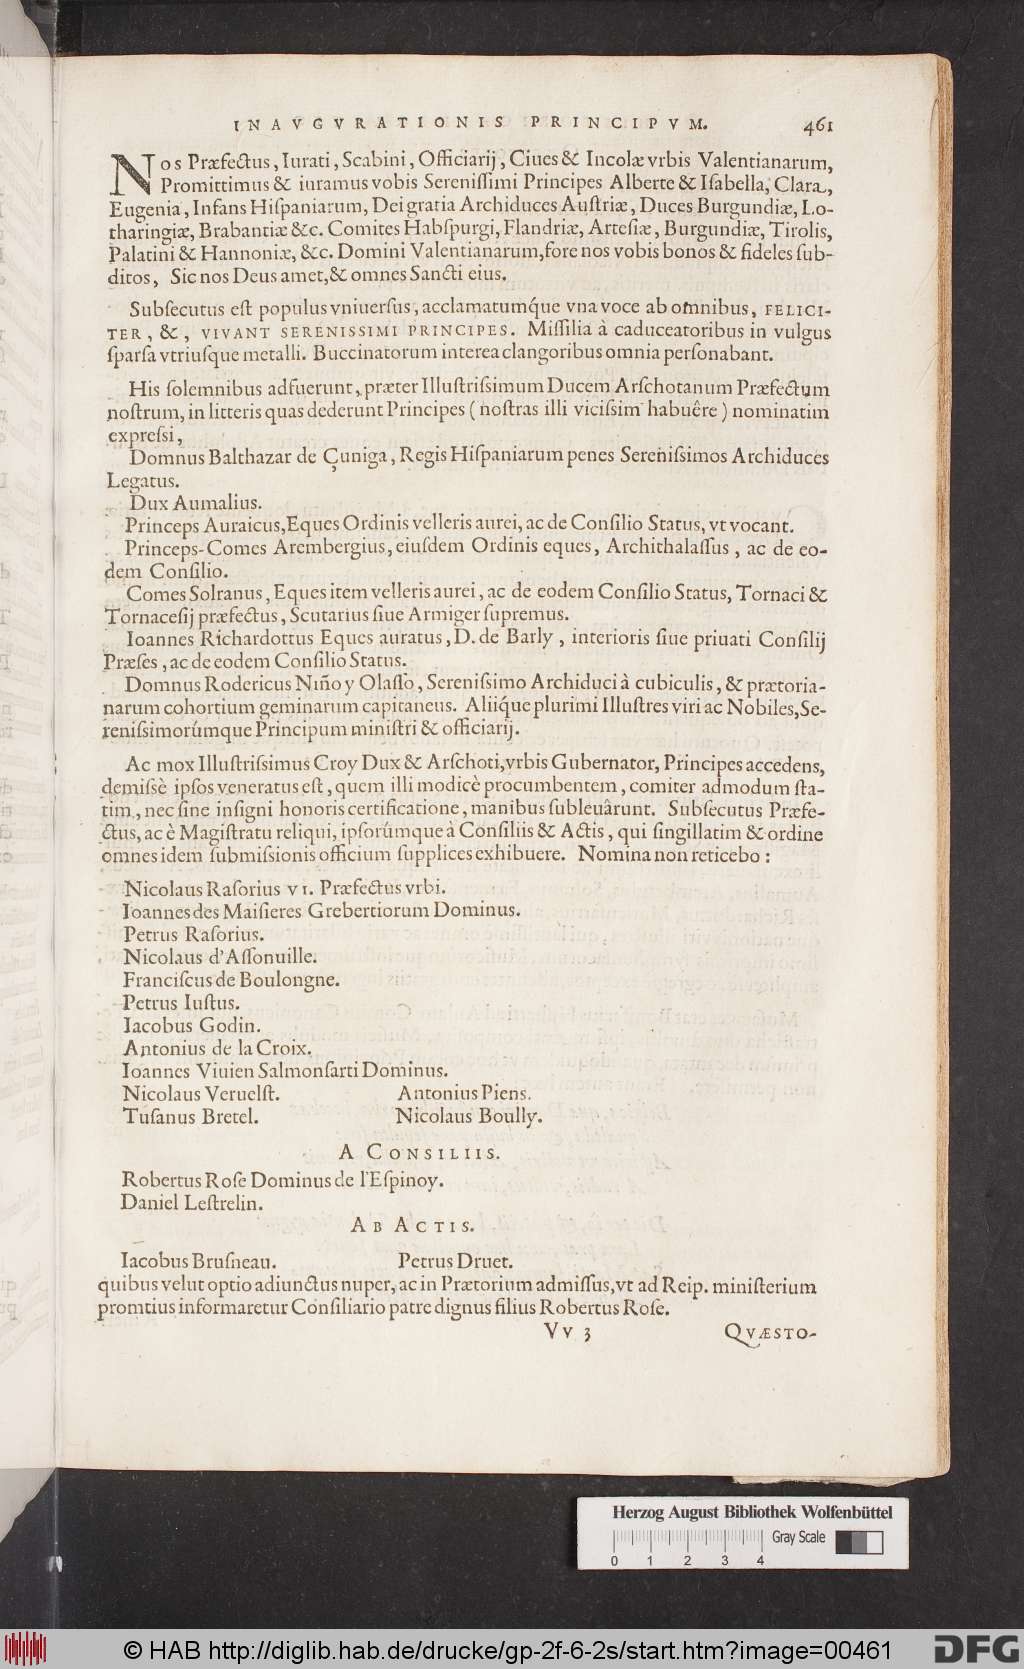 INAVGVRATIONIS PRINCIPVM. 461
Nos Præfectus, Iurati, Scabini, Officiarij, Ciues & Incolæ vrbis Valentianarum,
Promittimus & iuramus vobis Sereniſſimi Principes Alberte & Iſabella, Clara,
Eugenia, Infans Hiſpaniarum, Dei gratia Archiduces Auſtriæ, Duces Burgundiæ, Lo-
tharingiæ, Brabantiæ &c. Comites Habſpurgi, Flandriæ, Arteſiæ, Burgundiæ, Tirolis,
Palatini & Hannoniæ, &c. Domini Valentianarum, fore nos vobis bonos & fideles ſub-
ditos, Sic nos Deus amet, & omnes Sancti eius.
Subſecutus eſt populus vniuerſus, acclamatumq́ue vna voce ab omnibus, FELICI-
TER, &, VIVANT SERENISSIMI PRINCIPES. Miſſilia à caduceatoribus in vulgus
ſparſa vtriuſque metalli. Buccinatorum interea clangoribus omnia perſonabant.
His ſolemnibus adfuerunt, præter Illuſtriſsimum Ducem Arſchotanum Præfectum
noſtrum, in litteris quas dederunt Principes (noſtras illi viciſsim habuêre) nominatim
expreſsi,
Domnus Balthazar de Çuniga, Regis Hiſpaniarum penes Sereniſsimos Archiduces
Legatus.
Dux Aumalius.
Princeps Auraicus, Eques Ordinis velleris aurei, ac de Conſilio Status, vt vocant.
Princeps-Comes Arembergius, eiuſdem Ordinis eques, Archithalaſſus, ac de eo-
dem Conſilio.
Comes Solranus, Eques item velleris aurei, ac de eodem Conſilio Status, Tornaci &
Tornaceſij præfectus, Scutarius ſiue Armiger ſupremus.
Ioannes Richardottus Eques auratus, D. de Barly, interioris ſiue priuati Conſilij
Præſes, ac de eodem Conſilio Status.
Domnus Rodericus Niño y Olaſſo, Sereniſsimo Archiduci à cubiculis, & prætoria-
narum cohortium geminarum capitaneus. Aliiq́ue plurimi Illuſtres viri ac Nobiles, Se-
reniſsimorúmque Principum miniſtri & officiarij.
Ac mox Illuſtriſsimus Croy Dux & Arſchoti, vrbis Gubernator, Principes accedens,
demiſsè ipſos veneratus eſt, quem illi modicè procumbentem, comiter admodum ſta-
tim, nec ſine inſigni honoris certificatione, manibus ſubleuârunt. Subſecutus Præfe-
ctus, ac è Magiſtratu reliqui, ipſorúmque à Conſiliis & Actis, qui ſingillatim & ordine
omnes idem ſubmiſsionis officium ſupplices exhibuere. Nomina non reticebo:
Nicolaus Raſorius VI. Præfectus vrbi.
Ioannes des Maiſieres Grebertiorum Dominus.
Petrus Raſorius.
Nicolaus d'Aſſonuille.
Franciſcus de Boulongne.
Petrus Iuſtus.
Iacobus Godin.
Antonius de la Croix.
Ioannes Viuien Salmonſarti Dominus.
Nicolaus Veruelſt. Antonius Piens.
Tuſanus Bretel. Nicolaus Boully.
A CONSILIIS.
Robertus Roſe Dominus de l'Eſpinoy.
Daniel Leſtrelin.
AB ACTIS.
Iacobus Bruſneau. Petrus Druet.
quibus velut optio adiunctus nuper, ac in Prætorium admiſſus, vt ad Reip. miniſterium
promtius informaretur Conſiliario patre dignus filius Robertus Roſe.
Vv 3 QVÆSTO-
Herzog August Bibliothek Wolfenbüttel
Gray Scale
0 1 2 3 4
© HAB http://diglib.hab.de/drucke/gp-2f-6-2s/start.htm?image=00461
DFG